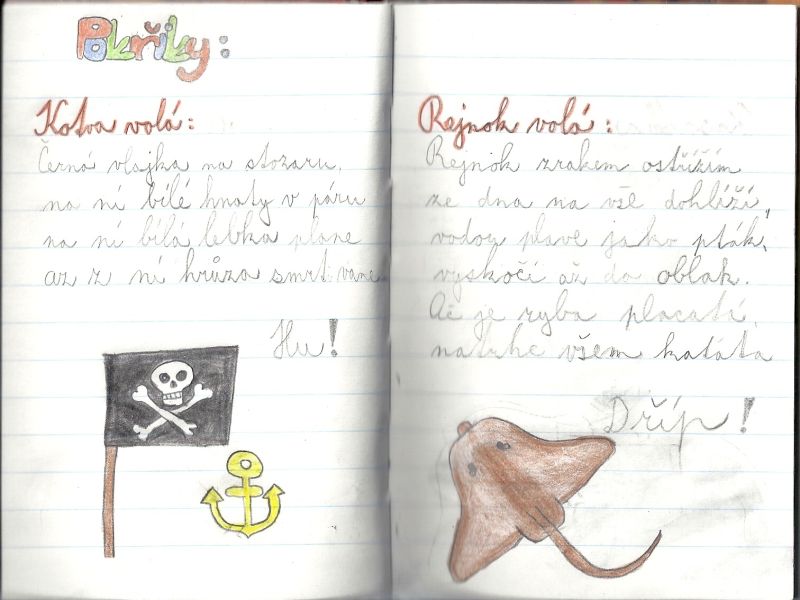 Pokřiky:
Kotva volá:
Černá vlajka na stozaru,
na ní bílé hnaty v páru
na ní bílá lebka plane
az z ní hrůza smrt vane
Hu!
Rejnok volá:
Rejnok zrakem ostřížím
ze dna na vše dohlíží,
vodou plave jako pták,
vyskočí až do oblak.
Ač je ryba placatá,
natrhe všem kaťata
Dříp!